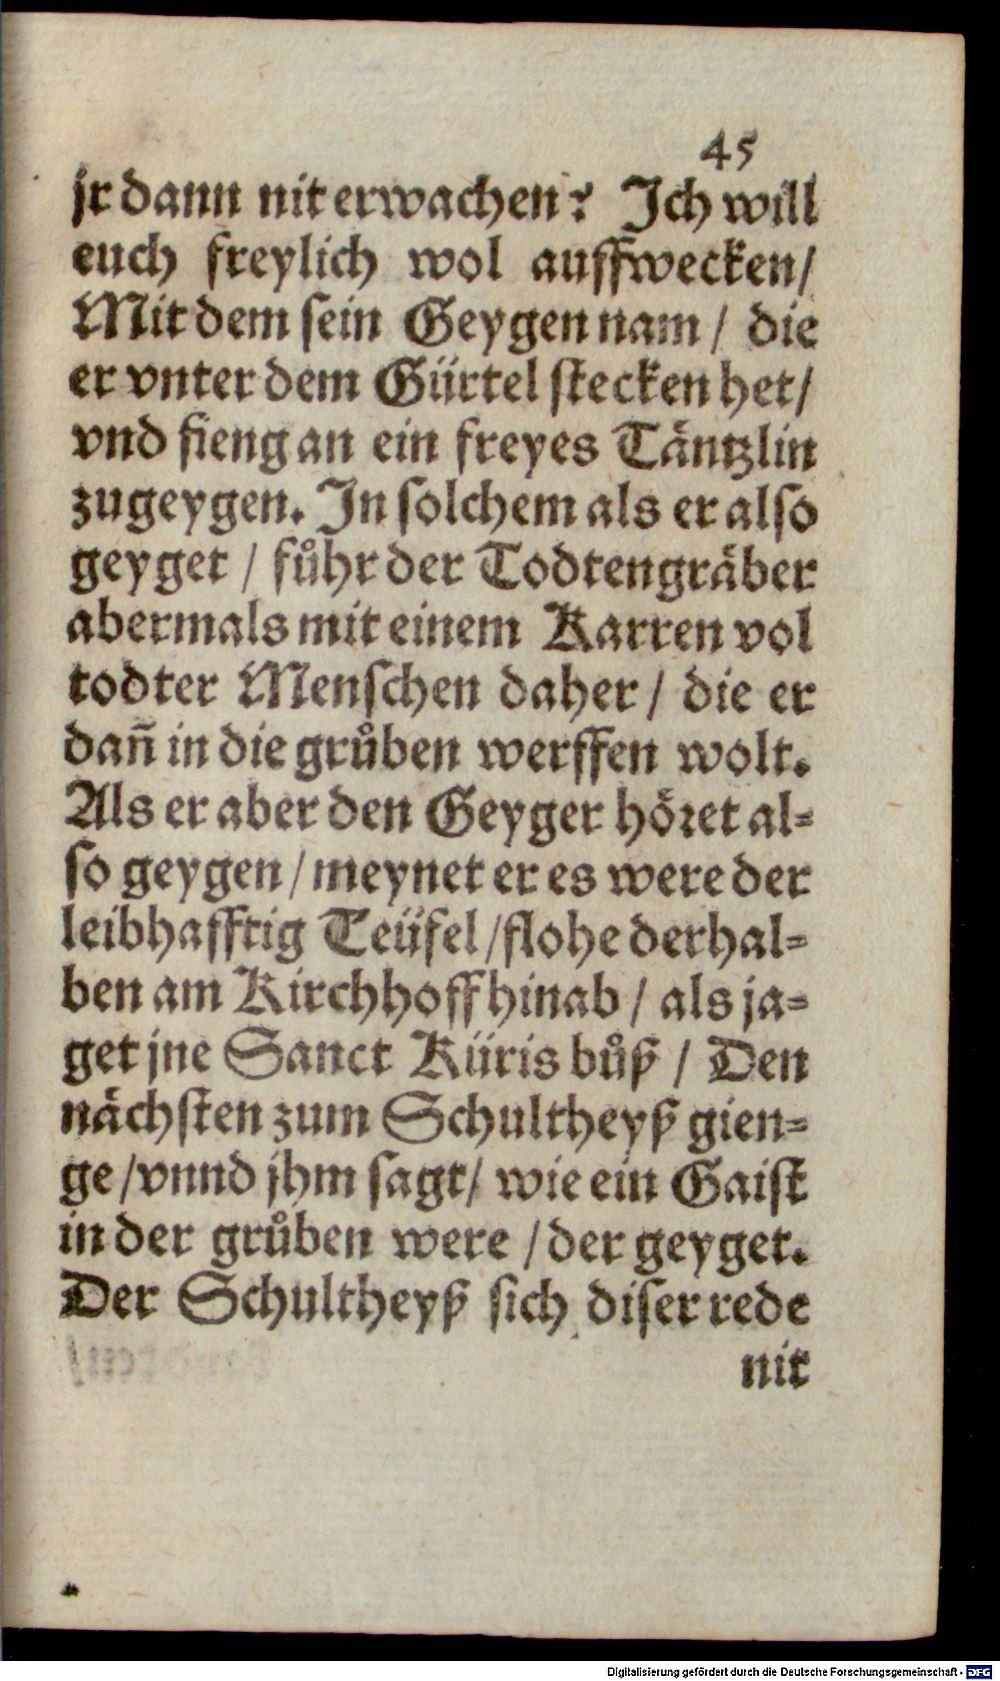 45
jr dann nit erwachen? Ich will
euch freylich wol auffwecken/
Mit dem sein Geygen nam/ die
er vnter dem Gürtel stecken het/
vnd fieng an ein freyes Täntzlin
zugeygen. In solchem als er also
geyget / fůhr der Todtengräber
abermals mit einem Karren vol
todter Menschen daher / die er
dañ in die grůben werffen wolt.
Als er aber den Geyger höret al-
so geygen / meynet er es were der
leibhafftig Teüfel / flohe derhal-
ben am Kirchhoff hinab / als ja-
get jne Sanct Küris bůß / Den
nächsten zum Schultheyß gien-
ge / vnnd jhm sagt/ wie ein Gaist
in der grůben were / der geyget.
Der Schultheyß sich diser rede
nit
Digitalisierung gefördert durch die Deutsche Forschungsgemeinschaft - DFG